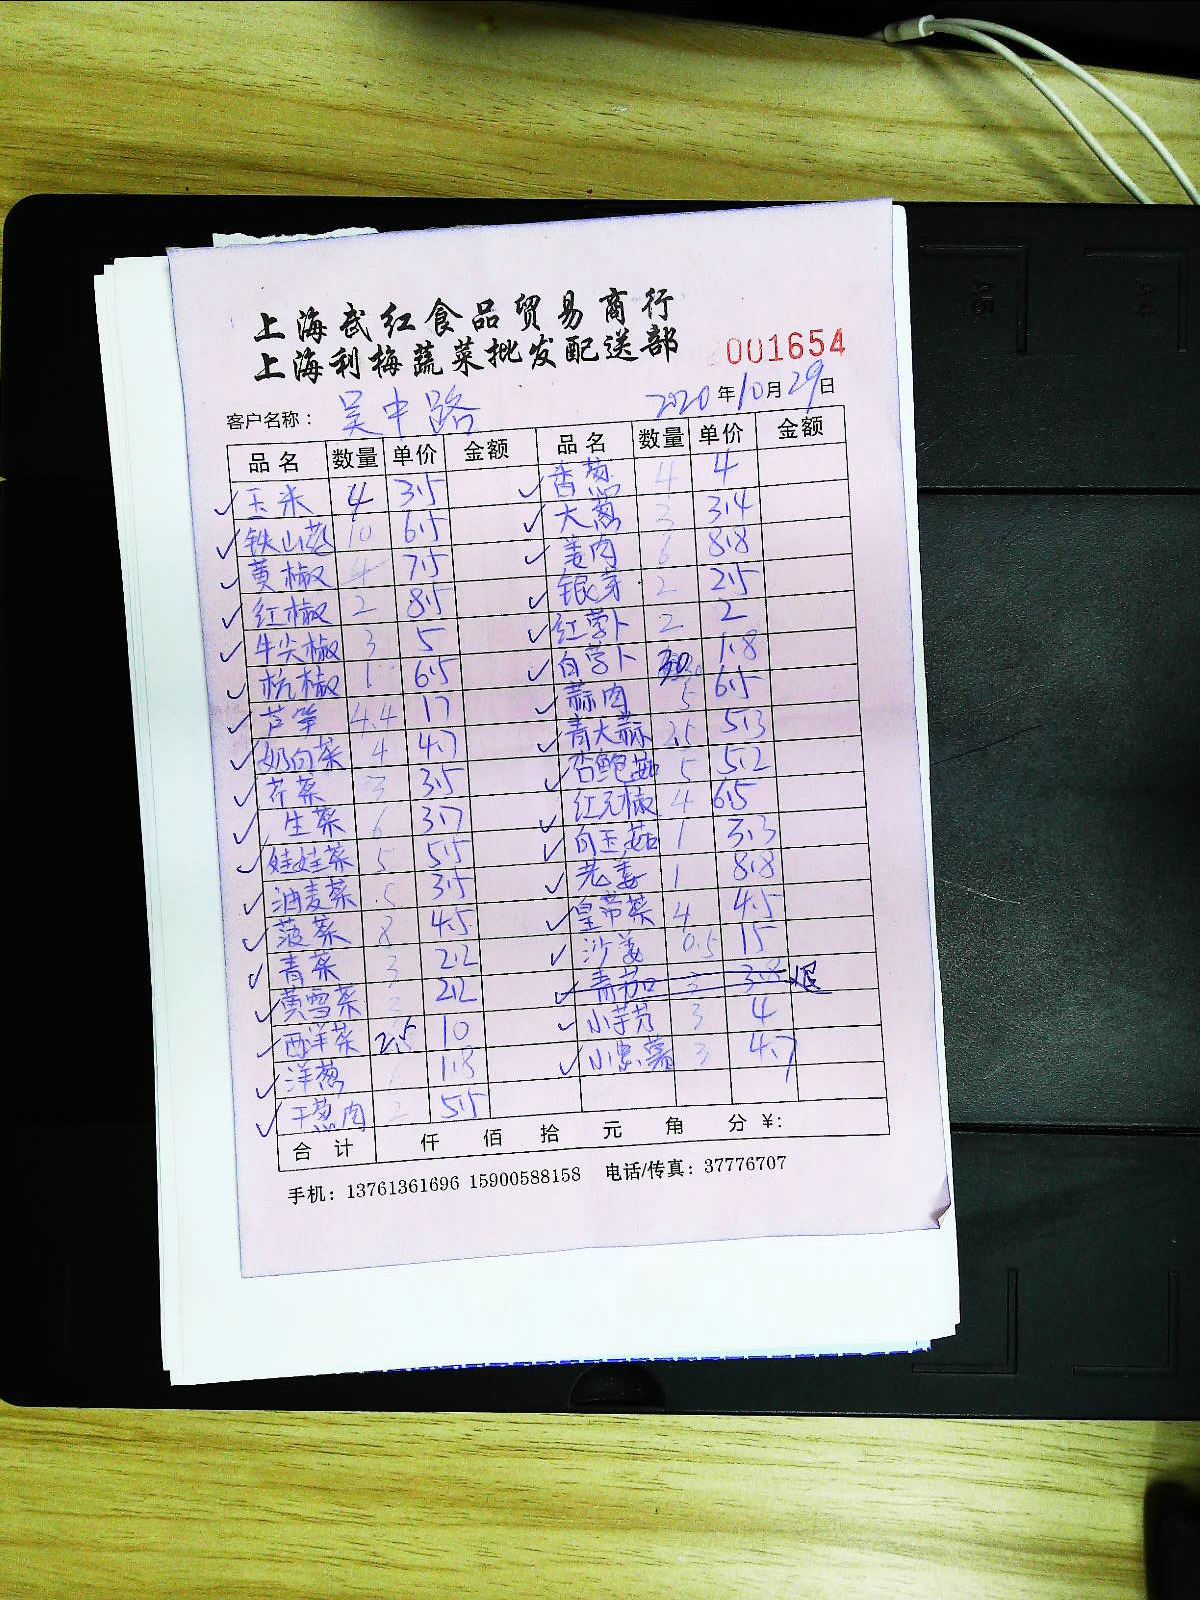 上海武红食品贸易商行
上海利梅蔬菜批发配送部
001654
客户名称： 吴中路 2020年10月29日
品名 数量 单价 金额 品名 数量 单价 金额
✓ 玉米 4 3.5 ✓ 香葱 4 4
✓ 铁山药 10 6.5 ✓ 大葱 3 3.4
✓ 黄椒 4 7.5 ✓ 姜肉 6 8.8
✓ 红椒 2 8.5 ✓ 银芽 2 2.5
✓ 牛尖椒 3 5 ✓ 红萝卜 2 2
✓ 杭椒 1 6.5 ✓ 白萝卜 30 1.8
✓ 芦笋 4.4 17 ✓ 蒜肉 5 6.5
✓ 奶白菜 4 4.7 ✓ 青大蒜 2.5 5.3
✓ 芥菜 3 3.5 ✓ 杏鲍菇 5 5.2
✓ 生菜 6 3.7 ✓ 红元椒 4 6.5
✓ 娃娃菜 5 5.5 ✓ 白玉菇 1 3.3
✓ 油麦菜 5 3.5 ✓ 老姜 1 8.8
✓ 菠菜 8 4.5 ✓ 皇帝菜 4 4.5
✓ 青菜 3 2.2 ✓ 沙姜 0.5 15
✓ 黄雪菜 2 2.2 ✓ 青茄 3 3.8 退
✓ 西洋菜 2.5 10 ✓ 小芋艿 3 4
✓ 洋葱 1.8 ✓ 小 3 4.7
✓ 干葱肉 2 5.5
合计 仟 佰 拾 元 角 分 ¥：
手机：13761361696 15900588158 电话/传真：37776707
A5
A4